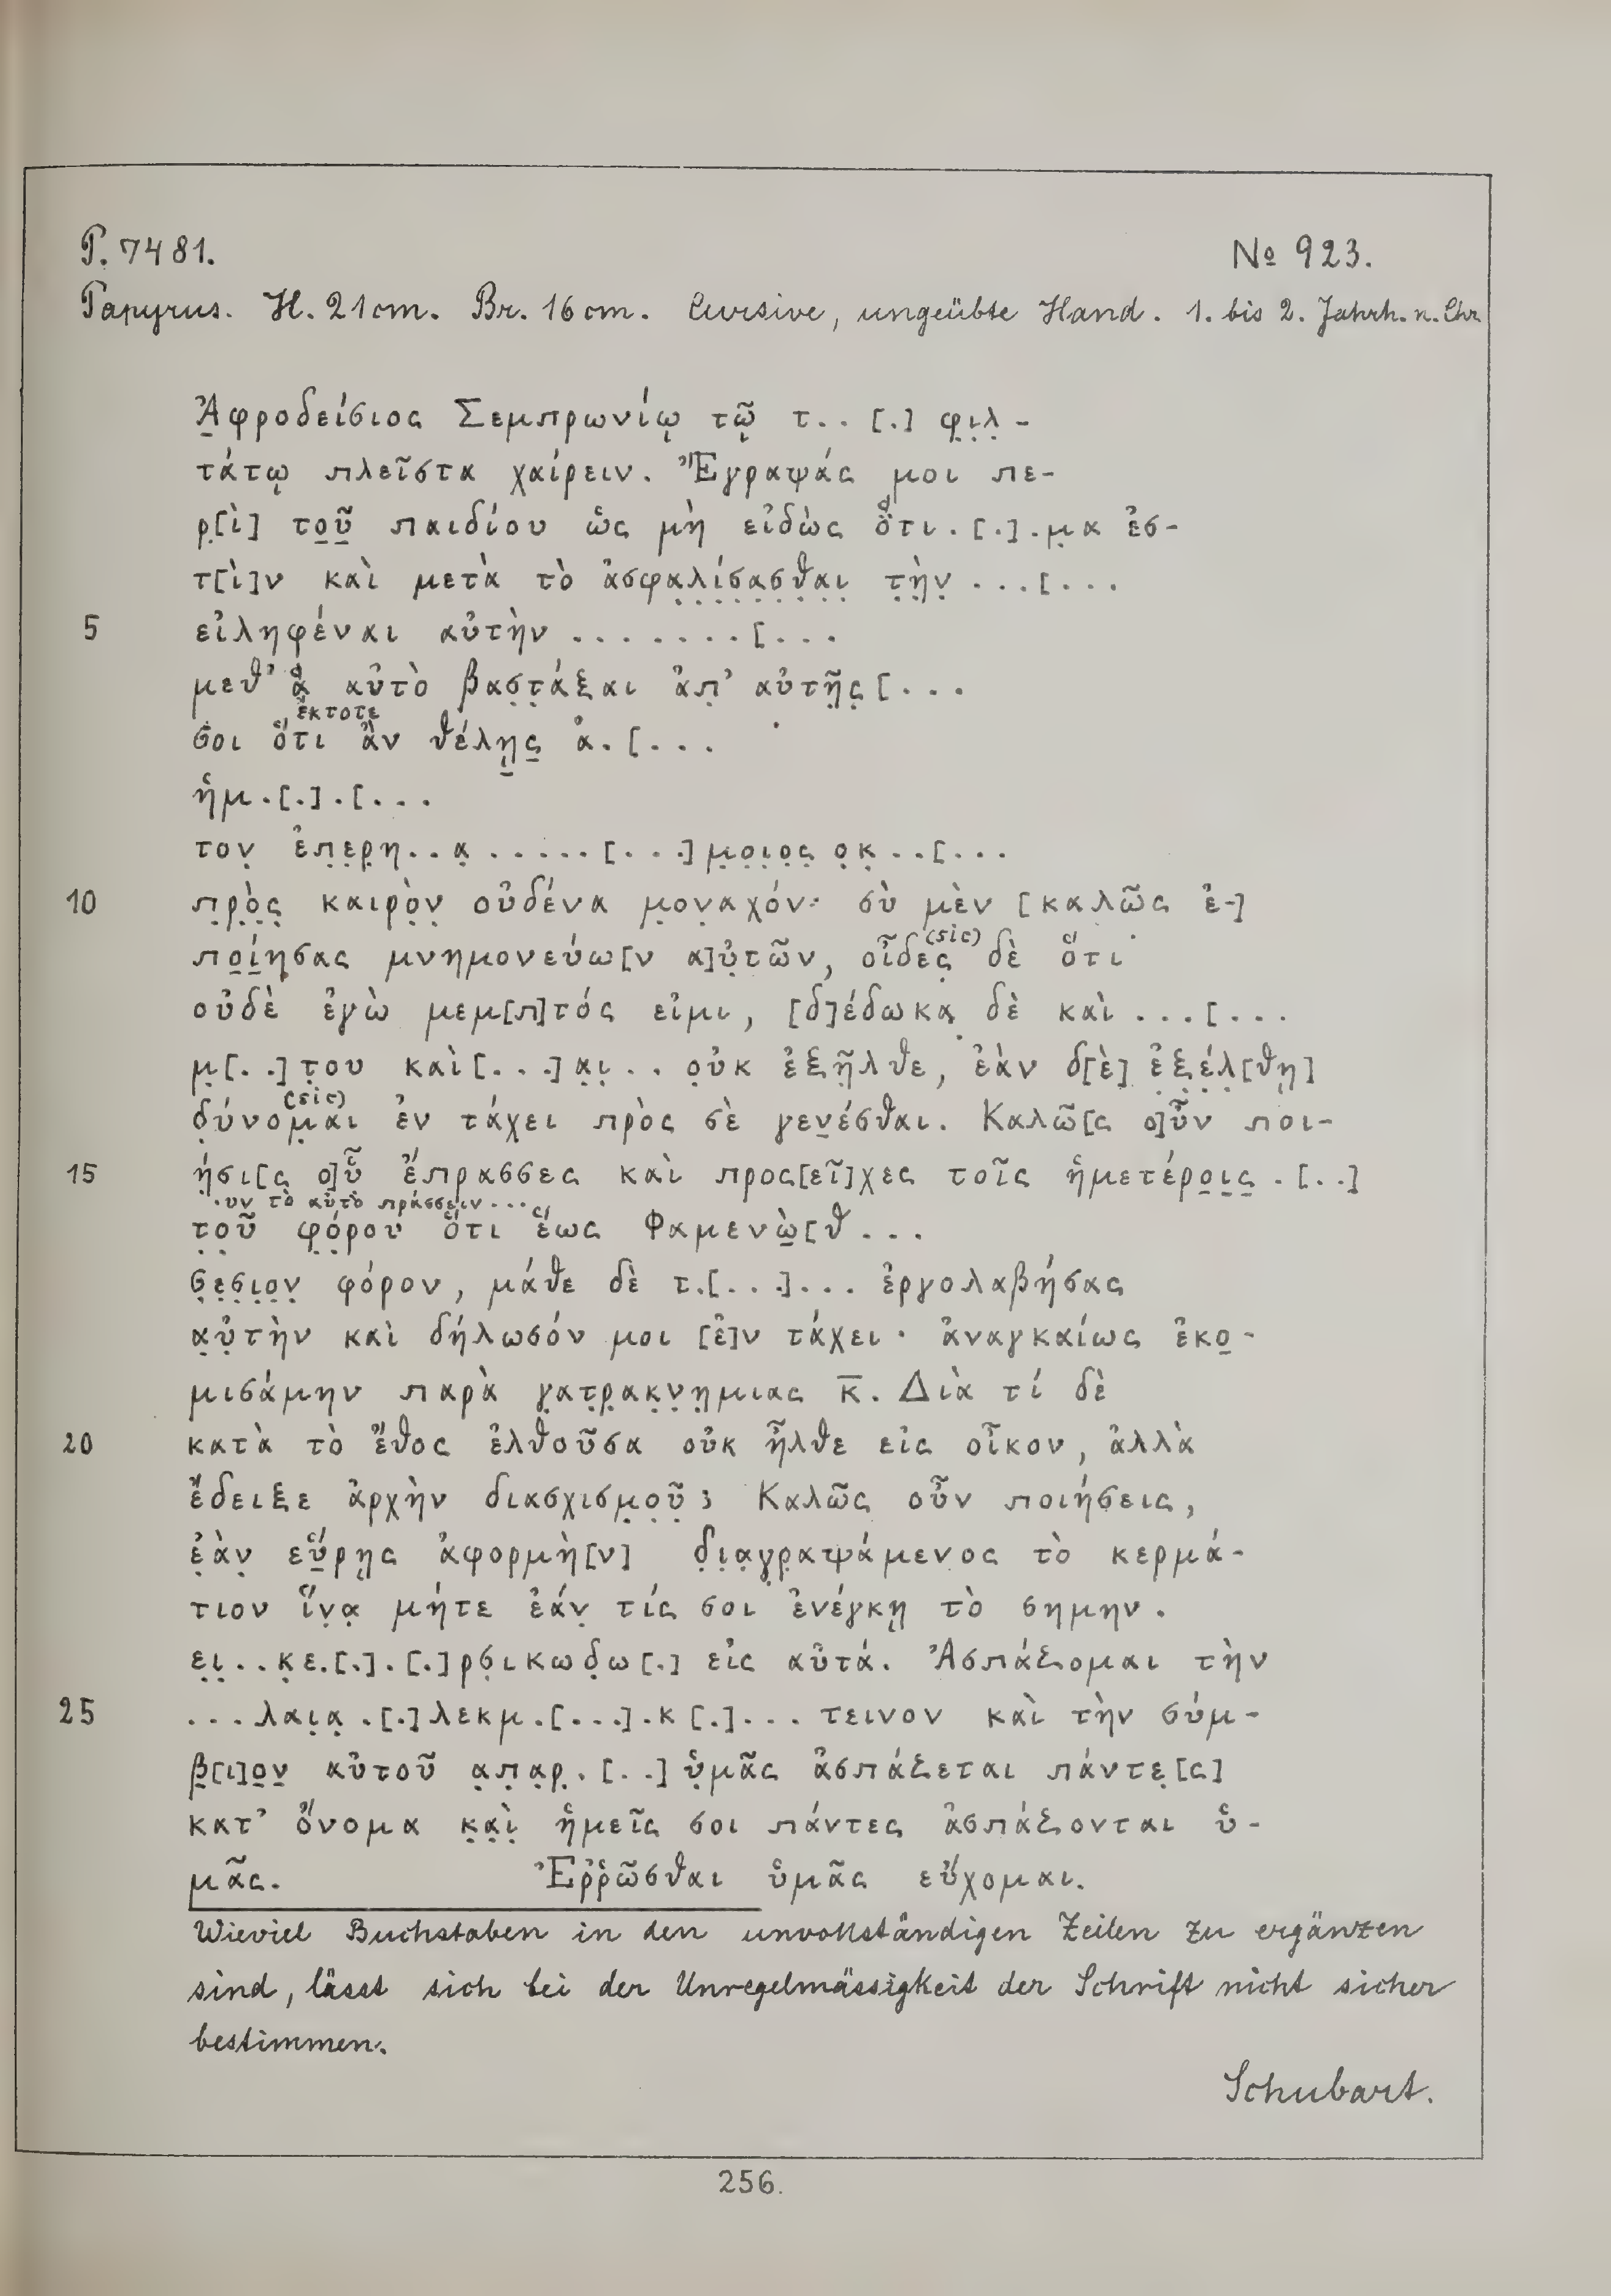 P. 7481. № 923.
Papyrus. H. 21cm. Br. 16cm. Cursive, ungeübte Hand. 1. bis 2. Jahrh. n. Chr.
Ἀ̣φροδείσιος Σεμπρωνίῳ τῷ τ . . [.] φ̣ι̣λ̣-
τάτῳ πλεῖστα χαίρειν. Ἔγραψάς μοι πε-
ρ̣[ὶ] το̣ῦ̣ παιδίου ὡς μὴ εἰδὼς ὅτι . [.] . μ̣α ἐσ-
τ[ὶ]ν καὶ μετὰ τὸ ἀσφα̣λ̣ί̣σ̣α̣σ̣θ̣α̣ι̣ τ̣ὴ̣ν̣ . . . [ . . .
5 εἰληφέναι αὐτὴν . . . . . . . [ . . .
μεθ’ ἃ αὐτὸ βασ̣τ̣άξαι ἀπ̣’ αὐτῆ̣ς̣ [ . . .
ἔκτοτε
σοι ὅτι ἂν θέλῃ̣ς̣ ἀ . [ . . .
ἡμ . [.] . [ . . .
τον̣ ἐπ̣ε̣ρ̣η . . α̣ . . . . . [ . . .] μ̣ο̣ι̣ο̣ς̣ ο̣κ̣ . . [ . . .
10 π̣ρ̣ὸ̣ς̣ καιρὸ̣ν̣ οὐδένα μ̣ον̣αχόν· σὺ μὲν [καλῶς ἐ-]
πο̣ί̣ησας μνημονεύω[ν α]ὐ̣τῶν, οἶδες̣ (sic) δὲ ὅτι
οὐδὲ ἐγὼ μεμ[π]τός εἰμι, [δ]έδωκα̣ δὲ καὶ . . . [ . . .
μ̣[. .] τ̣ου καὶ [ . . .] α̣ι̣ . . ο̣ὐκ ἐξῆ̣λθε, ἐὰν δ[ὲ] ἐ̣ξ̣έ̣λ̣[θῃ]
δ̣ύνομ̣αι (sic) ἐν τάχει πρὸς σὲ γεν̣έσθαι. Καλῶ[ς ο]ὖν ποι-
15 ή̣σι[ς ο]ὗ ἔπρασσες καὶ προς[εῖ]χες τοῖς ἡμετέρο̣ι̣ς̣ . [. .]
. υν τὸ αὐτὸ πράσσειν . . .
τ̣ο̣ῦ φ̣ό̣ρου ὅτι ἕως Φαμενὼ̣[θ . . .
σ̣ε̣σ̣ι̣ο̣ν̣ φόρον, μάθε δὲ τ . [ . . .] . . . ἐργολαβήσας
α̣ὐ̣τὴν καὶ δήλωσόν μοι [ἐ]ν τάχει · ἀναγκαίως ἐκο̣-
μισάμην παρὰ γ̣ατ̣ρ̣α̣κ̣ν̣η̣μιας κ̅. Διὰ τί δὲ
20 κατὰ τὸ ἔθος ἐλθοῦσα οὐκ ἦλθε εἰς οἶκον, ἀλλὰ
ἔδειξε ἀρχὴν διασχισμ̣ο̣ῦ̣; Καλῶς οὖν ποιήσεις,
ἐ̣ὰν̣ εὕ̣ρῃς ἀφορμὴ[ν] δ̣ι̣α̣γρ̣αψάμενος τὸ κερμά-
τιον ἵν̣α̣ μήτε ἐάν̣ τίς σοι ἐνέγκῃ τὸ σημην .
ε̣ι̣ . . κ̣ε . [.] . [.] ρσ̣ικωδ̣ω[.] εἰς αὐτά. Ἀσπάζομαι τὴν
25 . . . λαι̣α̣ . [.] λεκμ . [ . . .] . κ [.] . . . τεινον καὶ τὴν σύμ-
β̣[ι]ο̣ν̣ αὐτοῦ α̣π̣α̣ρ̣ . [. .] ὑ̣μᾶς ἀσπάζεται πάντε̣[ς]
κατ’ ὄνομα κ̣α̣ὶ̣ ἡμεῖς σοι πάντες ἀσπάζονται ὑ-
μᾶς. Ἐῤῥῶσθαι ὑμᾶς εὔχομαι.
Wieviel Buchstaben in den unvollständigen Zeilen zu ergänzen
sind, lässt sich bei der Unregelmässigkeit der Schrift nicht sicher
bestimmen.
Schubart.
256.